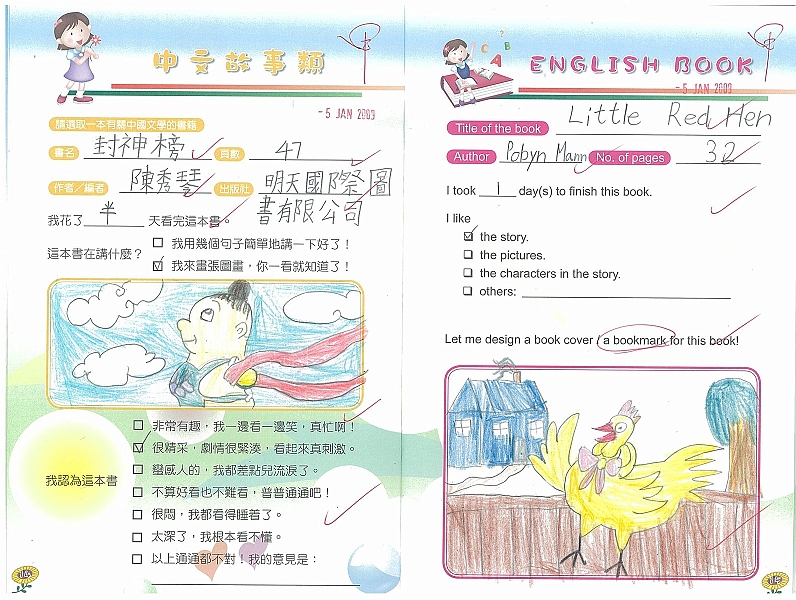 中文故事類
-5 JAN 2009
請選取一本有關中國文學的書籍
書名 封神榜 頁數 47
作者／編者 陳秀琴 出版社 明天國際圖
書有限公司
我花了 半 天看完這本書。
這本書在講什麼？
我用幾個句子簡單地講一下好了！
我來畫張圖畫，你一看就知道了！
我認為這本書
非常有趣，我一邊看一邊笑，真忙啊！
很精采，劇情很緊湊，看起來真刺激。
蠻感人的，我都差點兒流淚了。
不算好看也不難看，普普通通吧！
很悶，我都看得睡着了。
太深了，我根本看不懂。
以上通通都不對！我的意見是：
ENGLISH BOOK
-5 JAN 2009
Title of the book Little Red Hen
Author Pobyn Mann No. of pages 32
I took 1 day(s) to finish this book.
I like
the story.
the pictures.
the characters in the story.
others:
Let me design a book cover / a bookmark for this book!